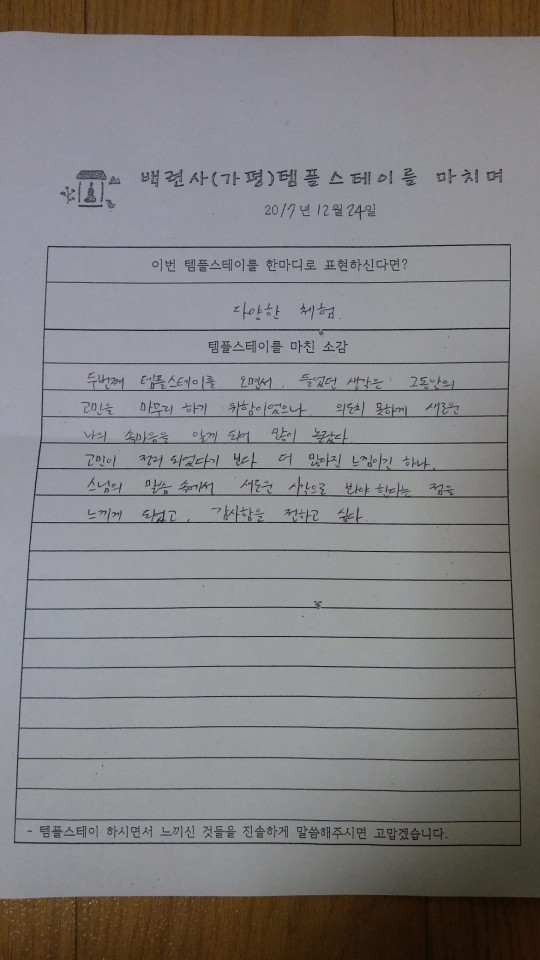 백련사(가평)템플스테이를 마치며
2017년 12월 24일
이번 템플스테이를 한마디로 표현하신다면?
다양한 체험.
템플스테이를 마친 소감
두번째 템플스테이를 오면서, 들었던 생각은 그동안의
고민을 마무리 하기 위함이었으나, 의도치 못하게 새로운
나의 속마음을 알게 되어 많이 놀랐다.
고민이 정리 되었다기 보다 더 많아진 느낌이긴 하나,
스님의 말씀 속에서 새로운 시각으로 봐야 한다는 점을
느끼게 되었고, 감사함을 전하고 싶다.
- 템플스테이 하시면서 느끼신 것들을 진솔하게 말씀해주시면 고맙겠습니다.